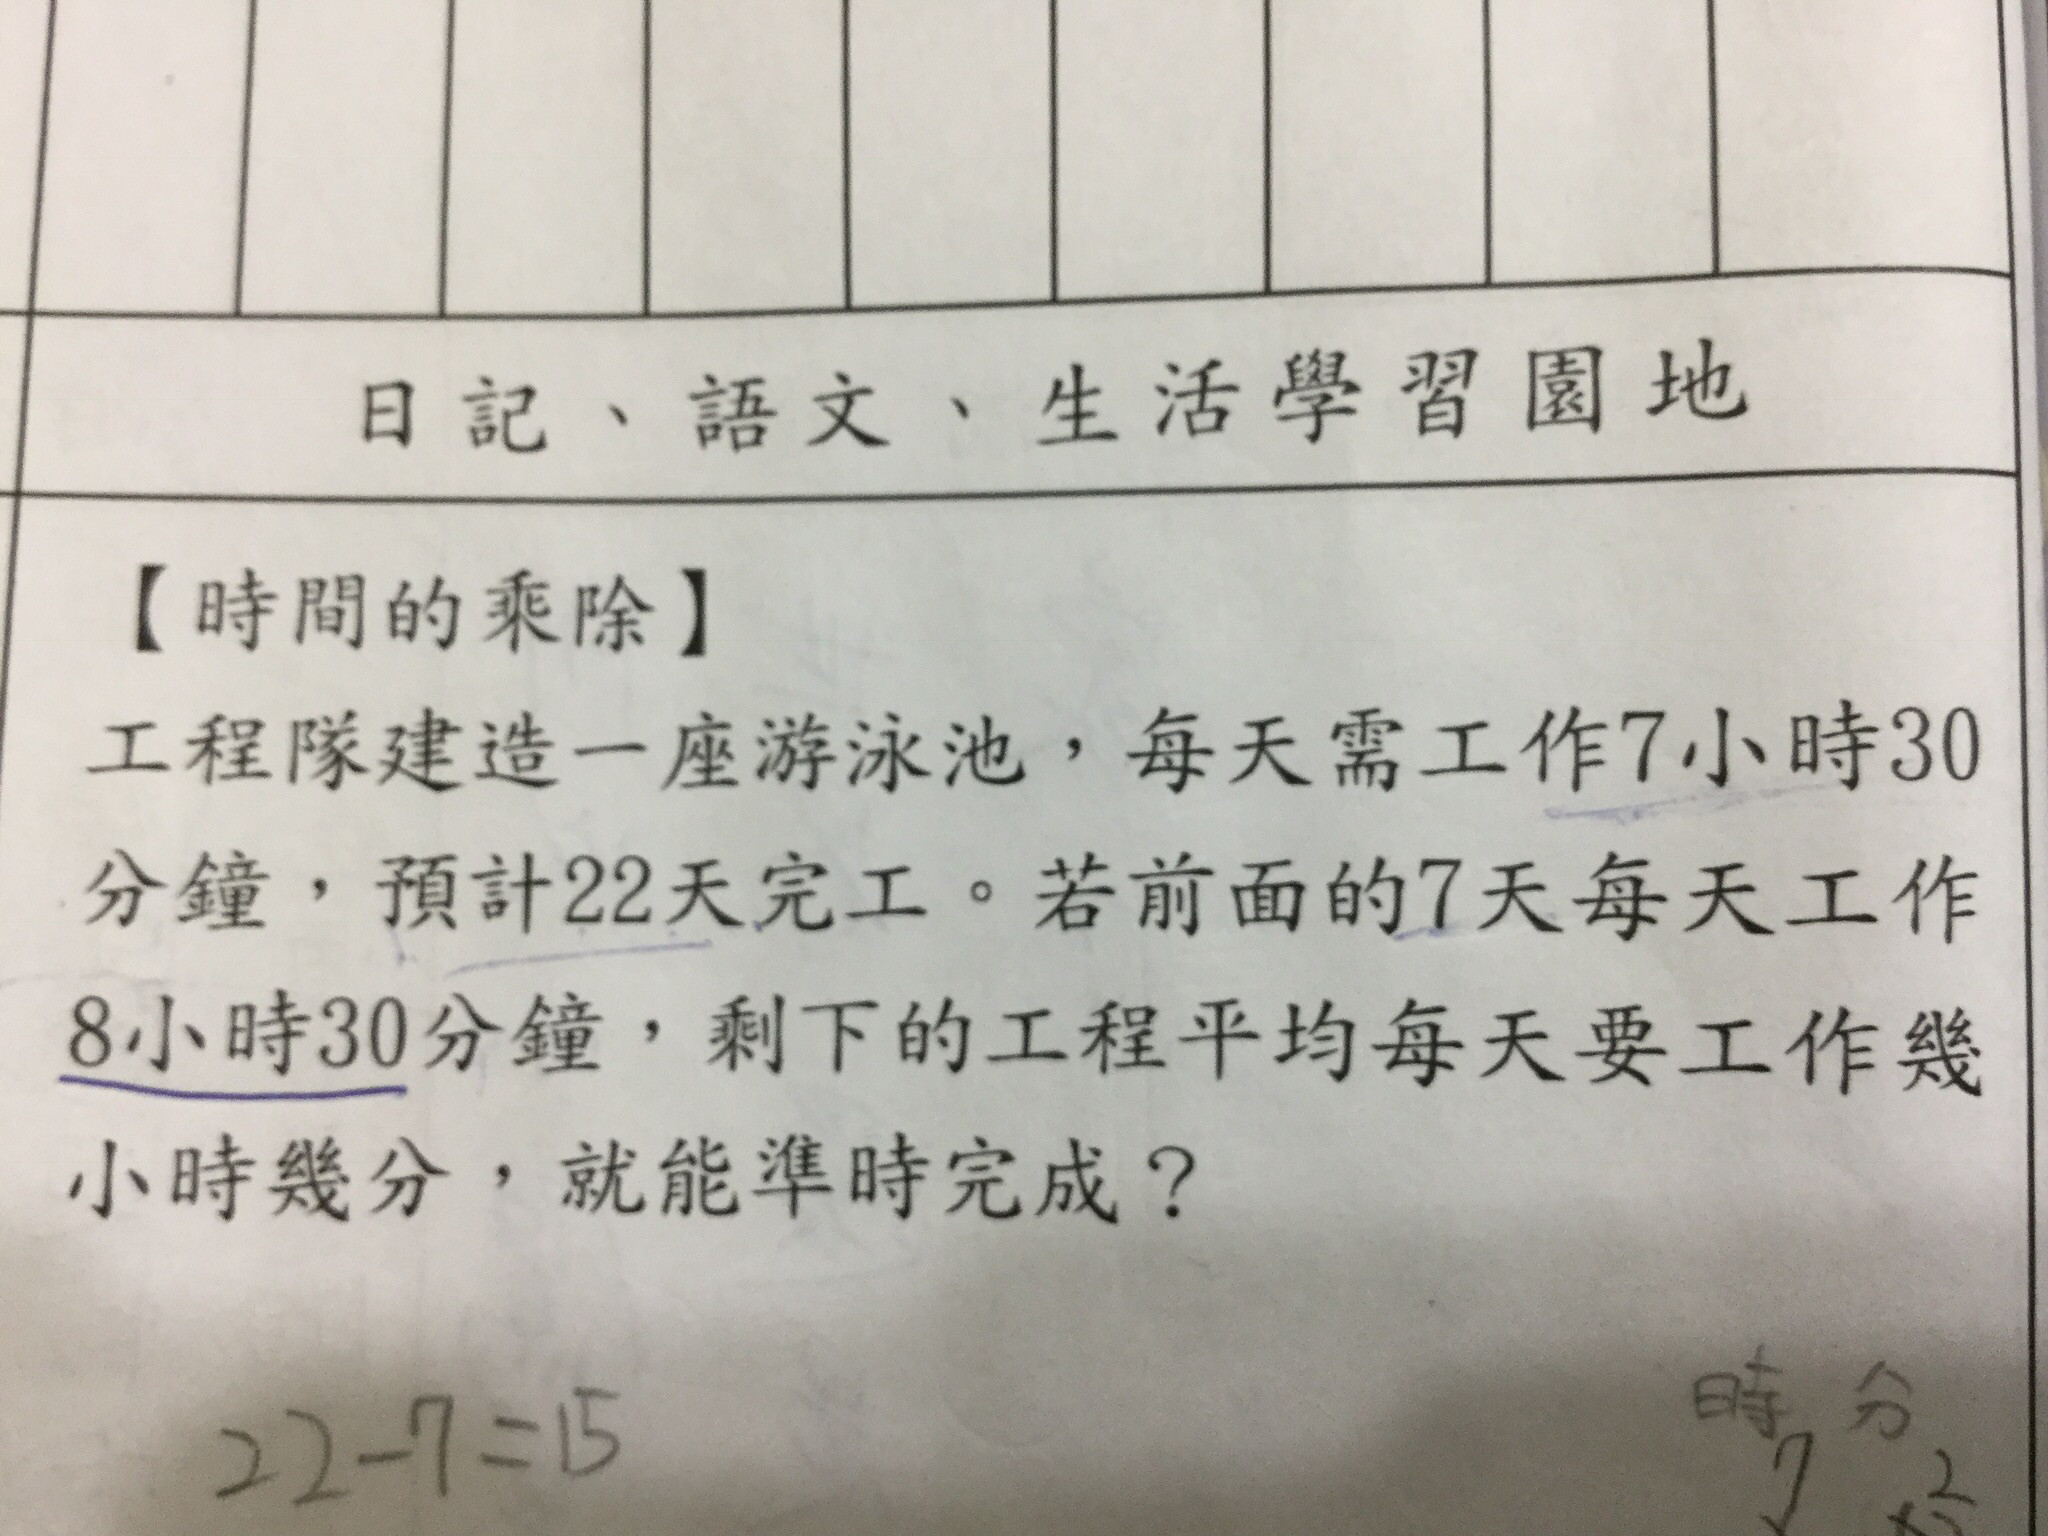 日記、語文、生活學習園地
【時間的乘除】
工程隊建造一座游泳池，每天需工作7小時30
分鐘，預計22天完工。若前面的7天每天工作
8小時30分鐘，剩下的工程平均每天要工作幾
小時幾分，就能準時完成？
22-7=15
時 分
7